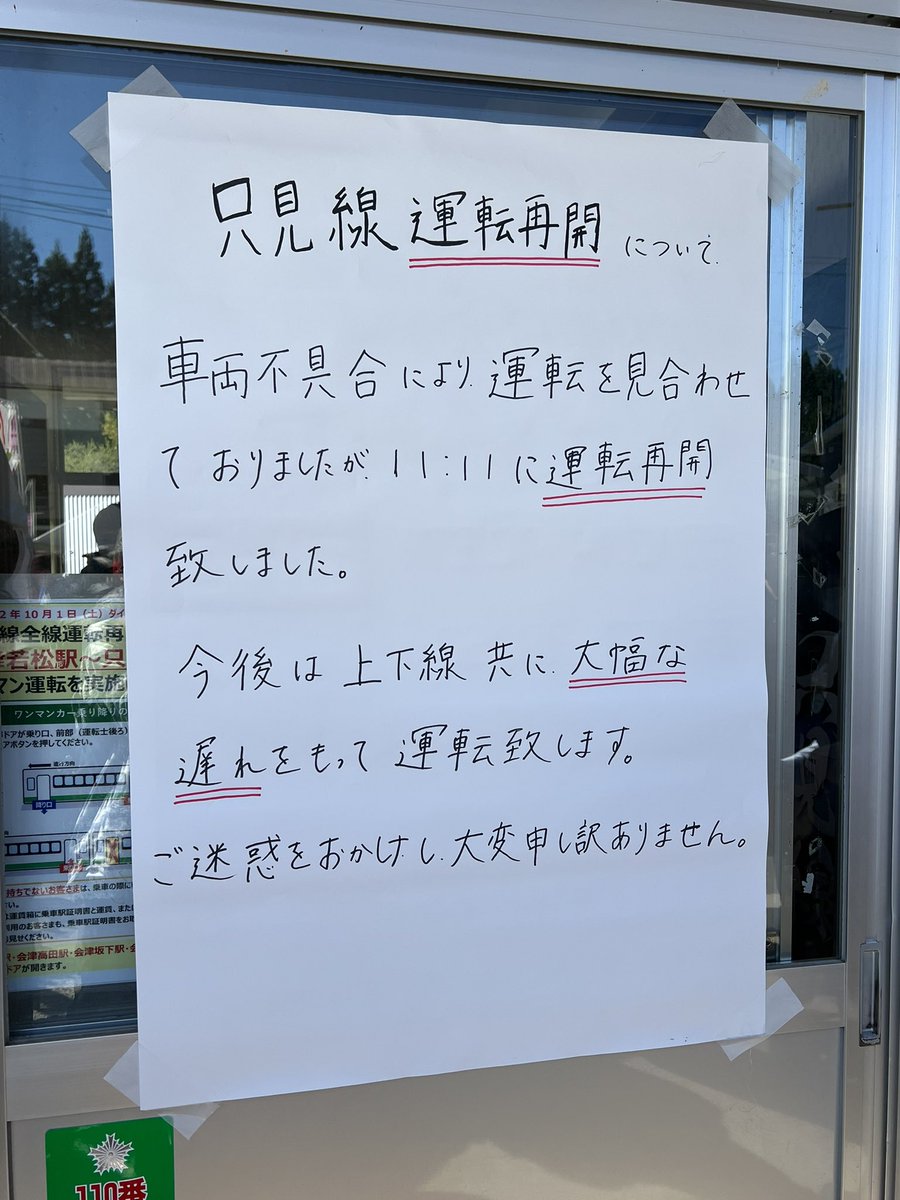 只見線運転再開について
車両不具合により運転を見合わせ
ておりましたが11:11に運転再開
致しました。
今後は上下線共に大幅な
遅れをもって運転致します。
ご迷惑をおかけし大変申し訳ありません。
2年10月1日(土)ダイ
線全線運転再
若松駅〜只
マン運転を実施
ワンマンカー乗り降りの
ドアが乗り口、前部(運転士後ろ)
アボタンを押してください。
降り口
持ちでないお客さまは、乗車の際に
さい。
は運賃箱に乗車駅証明書と運賃、また
利用のお客さまも、乗車駅証明書をお取
見せください。
駅・会津高田駅・会津坂下駅・会
ドアが開きます。
110番